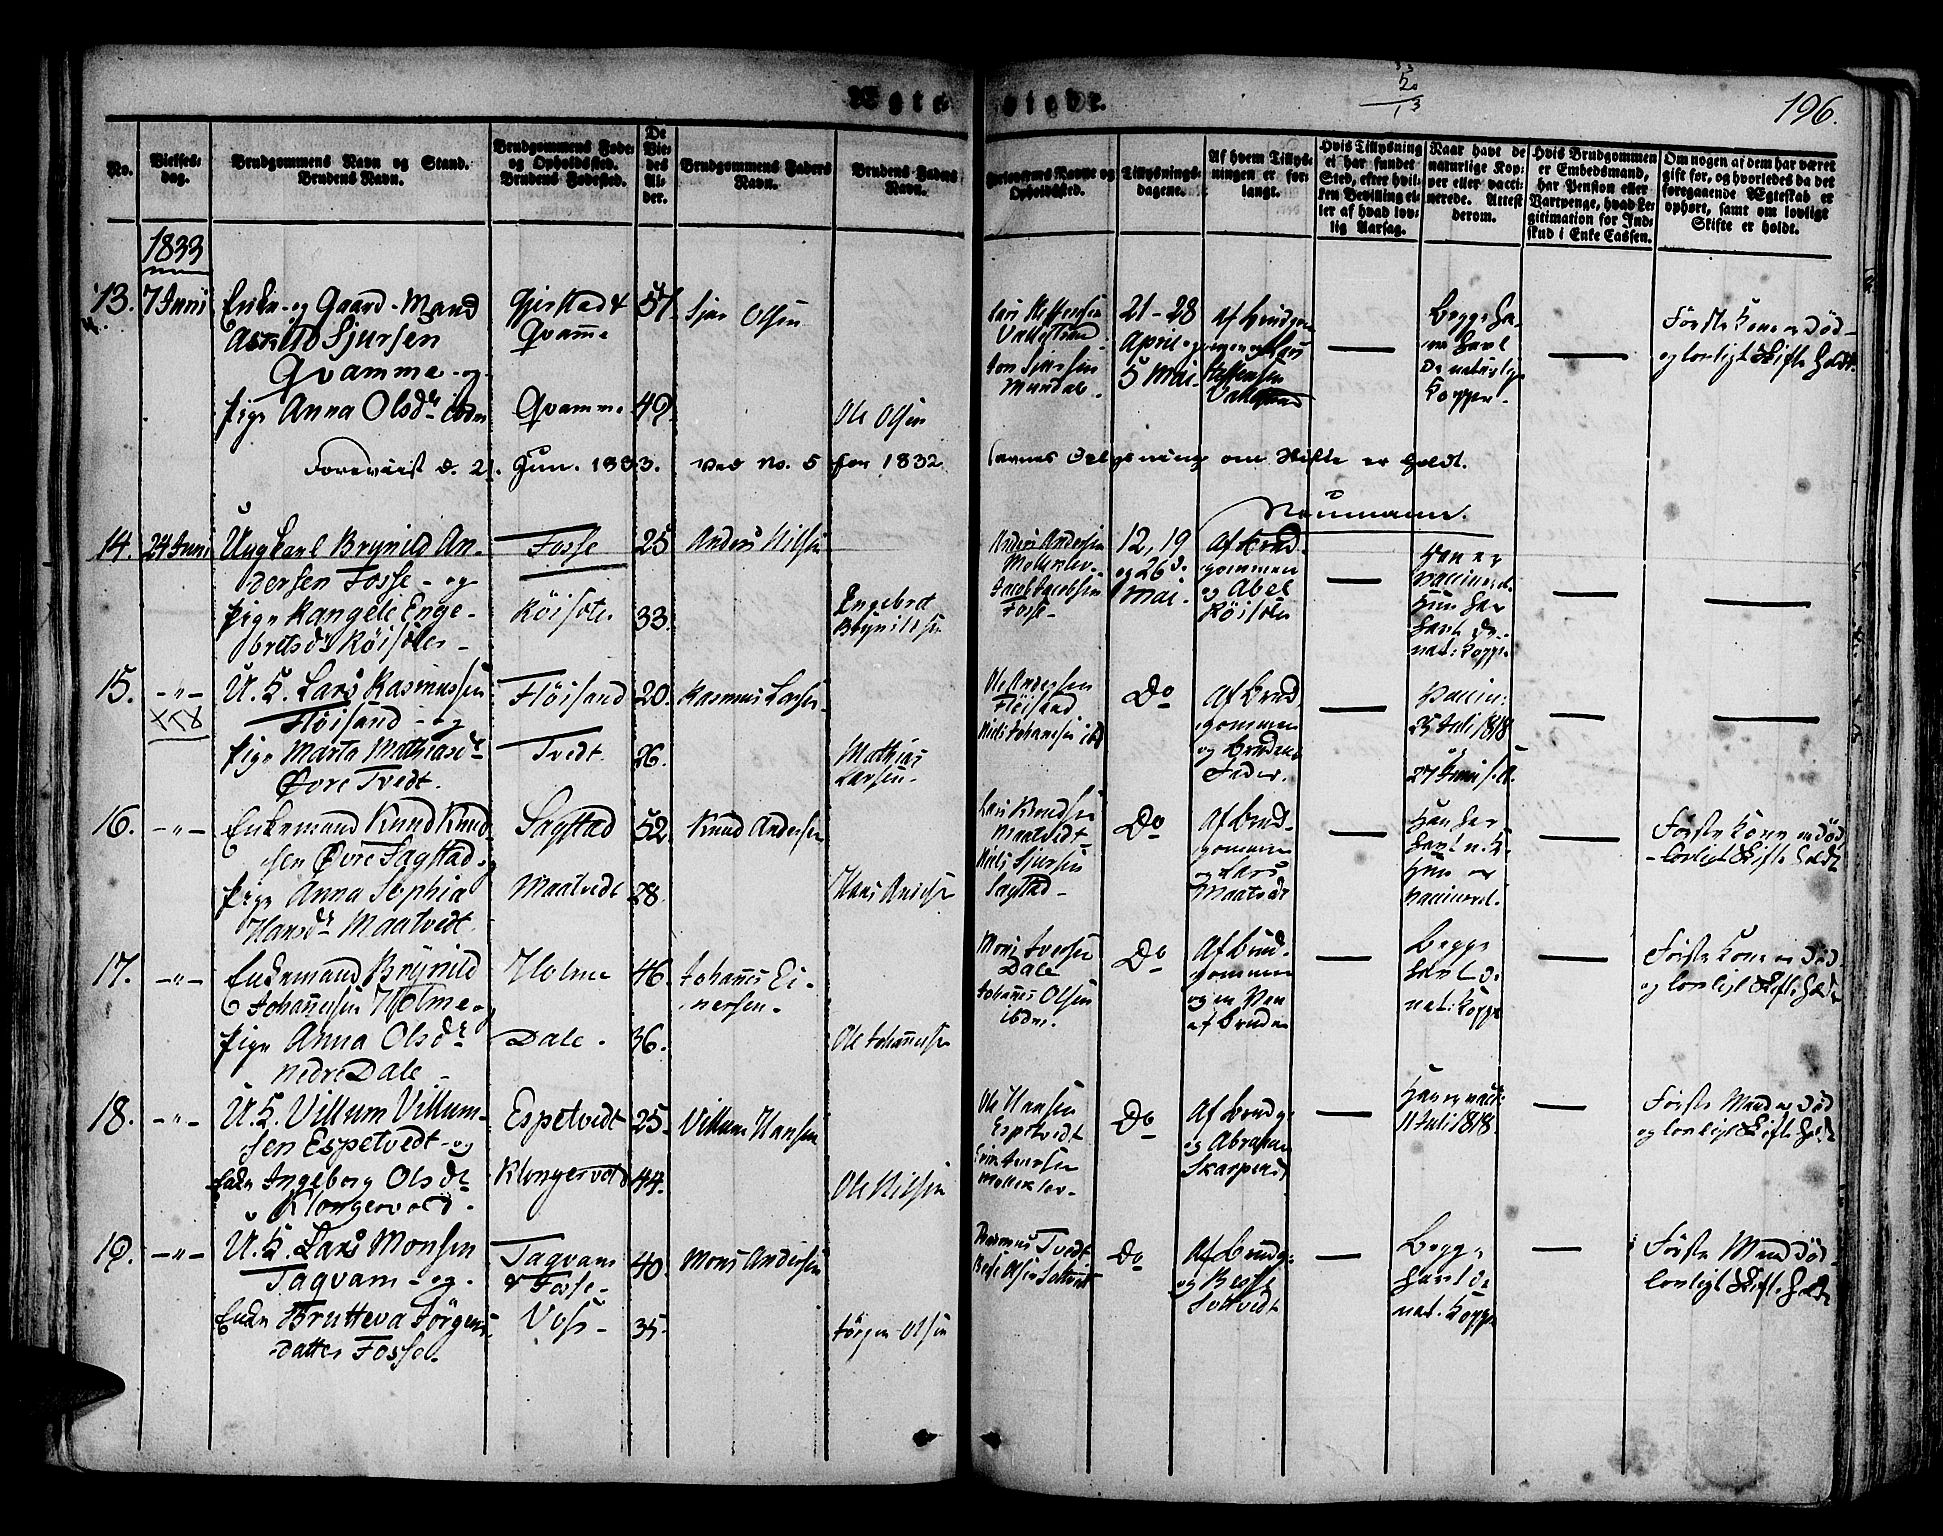 Ægte viede.
196.
No.
Vielses-
dag.
Brudgommens Navn og Stand.
Brudens Navn.
Brudgommens Føde-
og Opholdssted.
Brudens Fødested.
De
Vie-
des
Al-
der.
Brudgommens Faders
Navn.
Brudens Faders
Navn.
Forlovernes Navne og
Opholdssted.
Tillysnings-
dagene.
Af hvem Tillys-
ningen er for-
langt.
Hvis Tillysning
ei har fundet
Sted, efter hvil-
ken Bevilling el-
ler af hvad lov-
lig Aarsag.
Naar havt de
naturlige Kop-
per eller vacci-
nerede. Attest
derom.
Hvis Brudgommen
er Embedsmand,
har Pension eller
Vartpenge, hvad Le-
gitimation for Ind-
skud i Enke Cassen.
Om nogen af dem har været
gift før, og hvorledes da det
foregaaende Ægteskab er
ophørt, samt om lovligt
Skifte er holdt.
1833
13. 7 Juni
Enke- og Gaard-Mand
Sjursen
Qvamme - og
Pige Anna Olsdr ibdm
Gjerstad &
Qvamme
Qvamme
57
49
Sjur Olsen
Ole Olsen
Lars Steffensen
Jon Sjursen
Mundal.
21-28
April og
5 Mai.
Af Brudgom-
men og Lars
Steffensen
Begge ha-
ve havt
de naturlige
Kopper.
Første Kone er død
og lovligt Skifte holdt.
Foreviist d. 21. Jun. 1833. Ved No. 5 for 1832 savnes Oplysning om Skifte er holdt.
Neumann.
14. 24 Juni
Ungkarl Brynild An-
dersen Fosse - og
Pige Rangele Enge-
bretsdr Röisöter -
Fosse
Röisöter
25
33.
Anders Nilsen
Engebret
Brynildsen
Anders Andersen
Mollekler-
Jacob Jacobsen
Fosse-
12, 19
og 26d
Mai.
Af Brud-
gommen
og Abel
Röisöter
Han er
vaccineret.
Hun har
havt de
nat: Kopper
15. -"-
U. K. Lars Rasmussen
Flöisand - og
Pige Marta Mathiasdr
Øvre Tvedt.
Flöisand
Tvedt.
20
26.
Rasmus Larsen.
Mathias
Larsen.
Ole Andersen
Flöisand
Niels Johannesen ibd
Do
Af Brud
gommen
og Brudens
Fader.
Vaccin:
25 Juli 1818
og
27 Juni s. A.
16. -"-
Enkemand Knud Knud-
sen Øvre Sagstad og
Pige Anna Sophia
Hansdr Maatvedt.
Sagstad
Maatvedt
52
28.
Knud Andersen
Hans
Lars Knudsen
Maatvedt
Niels Sjursen
Sagstad -
Do
Af Brud-
gommen
og Lars
Maatvedt
Han har
havt n. K.
Hun er
vaccineret.
Første Kone er død
lovligt Skifte holdt
17. -"-
Enkemand Brynild
Johannessen Holme og
Pige Anna Olsdr
nedre Dale -
Holme
Dale.
46
36.
Johannes Ei-
nersen.
Ole Johannessen
Mons Iversen
Dale
Johannes Olsen
ibdm.
Do
Af Brud-
gommen
og en Ven
af Bruden
Begge
havt de
nat: Kopper
Første Kone er død
og lovligt Skifte holdt
18. -"-
U. K. Villum Villum-
sen Espetvedt - og
Enke Ingeborg Olsdr
Klongervold.
Espetvedt
Klongervold
25.
44.
Villum Hansen
Ole Nilsen
Ole Hansen
Espetvedt
Iversen
Do
Af Brudg:
og Abraham
Han er vacc:
11 Juli 1818.
Første Mand er död
og lovligt Skifte holdt
19. -"-
U. K. Lars Monsen
Tagvam - og
Enke Brutteva Jörgens-
datter Fosse.
Tagvam
& Fosse-
Voss -
40.
35.
Mons Andersen
Jörgen Olsen
Rasmus Tvedt
Do
Af Brudg:
og
Begge
havt de
nat: Kopper
Første Mand död
lovligt Skifte holdt